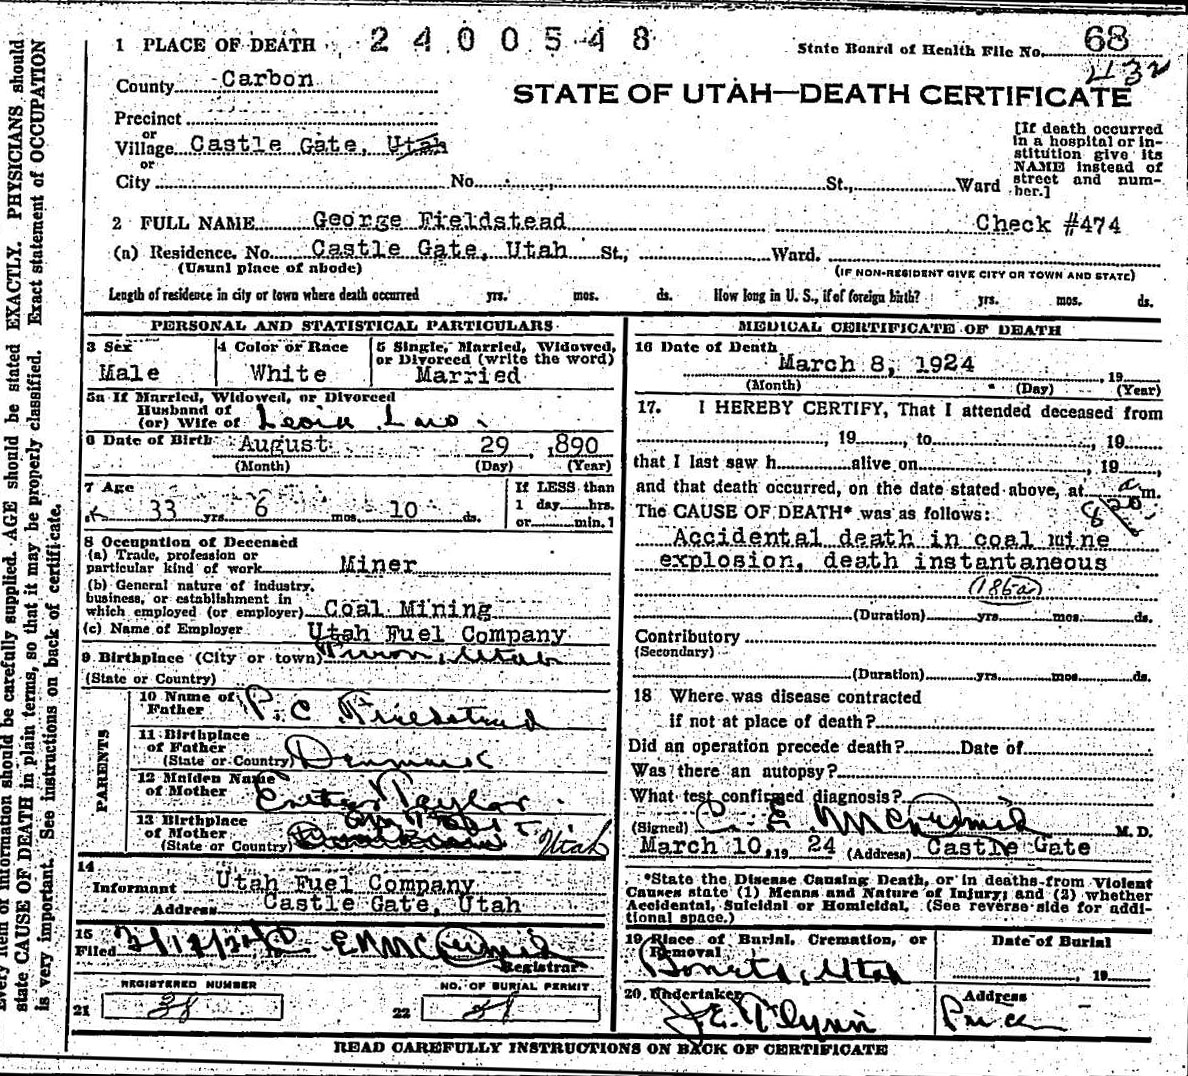 1 PLACE OF DEATH 2400548 State Board of Health File No. 68
432
County Carbon
STATE OF UTAH—DEATH CERTIFICATE
Precinct
or
Village Castle Gate, Utah
or
City No. St., Ward
[If death occurred
in a hospital or in-
stitution give its
NAME instead of
street and num-
ber.]
2 FULL NAME George Fieldstead Check #474
(a) Residence. No. Castle Gate, Utah St., Ward.
(Usual place of abode) (IF NON-RESIDENT GIVE CITY OR TOWN AND STATE)
Length of residence in city or town where death occurred yrs. mos. ds. How long in U. S., if of foreign birth? yrs. mos. ds.
PERSONAL AND STATISTICAL PARTICULARS
3 Sex
Male
4 Color or Race
White
5 Single, Married, Widowed,
or Divorced (write the word)
Married
5a If Married, Widowed, or Divorced
Husband of
(or) Wife of
6 Date of Birth August 29 , 1890
(Month) (Day) (Year)
7 Age
33 yrs 6 mos. 10 ds.
If LESS than
1 day hrs.
or min.1
8 Occupation of Deceased
(a) Trade, profession or
particular kind of work Miner
(b) General nature of industry,
business, or establishment in
which employed (or employer) Coal Mining
(c) Name of Employer Utah Fuel Company
9 Birthplace (City or town) Utah
(State or Country)
PARENTS
10 Name of
Father P. C. Fieldstead
11 Birthplace
of Father
(State or Country) Denmark
12 Maiden Name
of Mother Taylor
13 Birthplace
of Mother
(State or Country) Utah
14
Informant Utah Fuel Company
Address Castle Gate, Utah
15
Filed 3/12/24 E. McDermid
Registrar
REGISTERED NUMBER
21 38
NO. OF BURIAL PERMIT
22
MEDICAL CERTIFICATE OF DEATH
16 Date of Death
March 8, 1924 , 19
(Month) (Day) (Year)
17. I HEREBY CERTIFY, That I attended deceased from
, 19 , to , 19
that I last saw h alive on , 19 ,
and that death occurred, on the date stated above, at a m.
The CAUSE OF DEATH* was as follows:
Accidental death in coal mine
explosion, death instantaneous
(186a)
(Duration) yrs. mos. ds.
Contributory
(Secondary)
(Duration) yrs. mos. ds.
18 Where was disease contracted
if not at place of death?
Did an operation precede death? Date of
Was there an autopsy?
What test confirmed diagnosis?
(Signed) C. E. McDermid M. D.
March 10, 19 24 (Address) Castle Gate
*State the Disease Causing Death, or in deaths from Violent
Causes state (1) Means and Nature of Injury; and (2) whether
Accidental, Suicidal or Homicidal. (See reverse side for addi-
tional space.)
19 Place of Burial, Cremation, or
Removal
Utah
Date of Burial
, 19
20 Undertaker
J. E. Flynn
Address
Price
READ CAREFULLY INSTRUCTIONS ON BACK OF CERTIFICATE
EXACTLY. PHYSICIANS should
Exact statement of OCCUPATION
Every item of information should be carefully supplied. AGE should be stated
state CAUSE OF DEATH in plain terms, so that it may be properly classified.
is very important. See instructions on back of certificate.